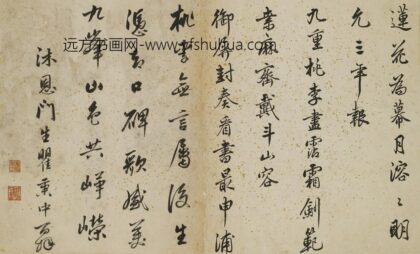 蓮花為幕月溶〻明
允三年報
九重桃李盡霑霜劍範
業麻齊戴斗山容
御屏封奏看書最申浦
桃李無言屬後生
憑去口碑歌盛美
九峯山色共崢嶸
沐恩門生瞿秉中
远方书画网-www.yfshuhua.com